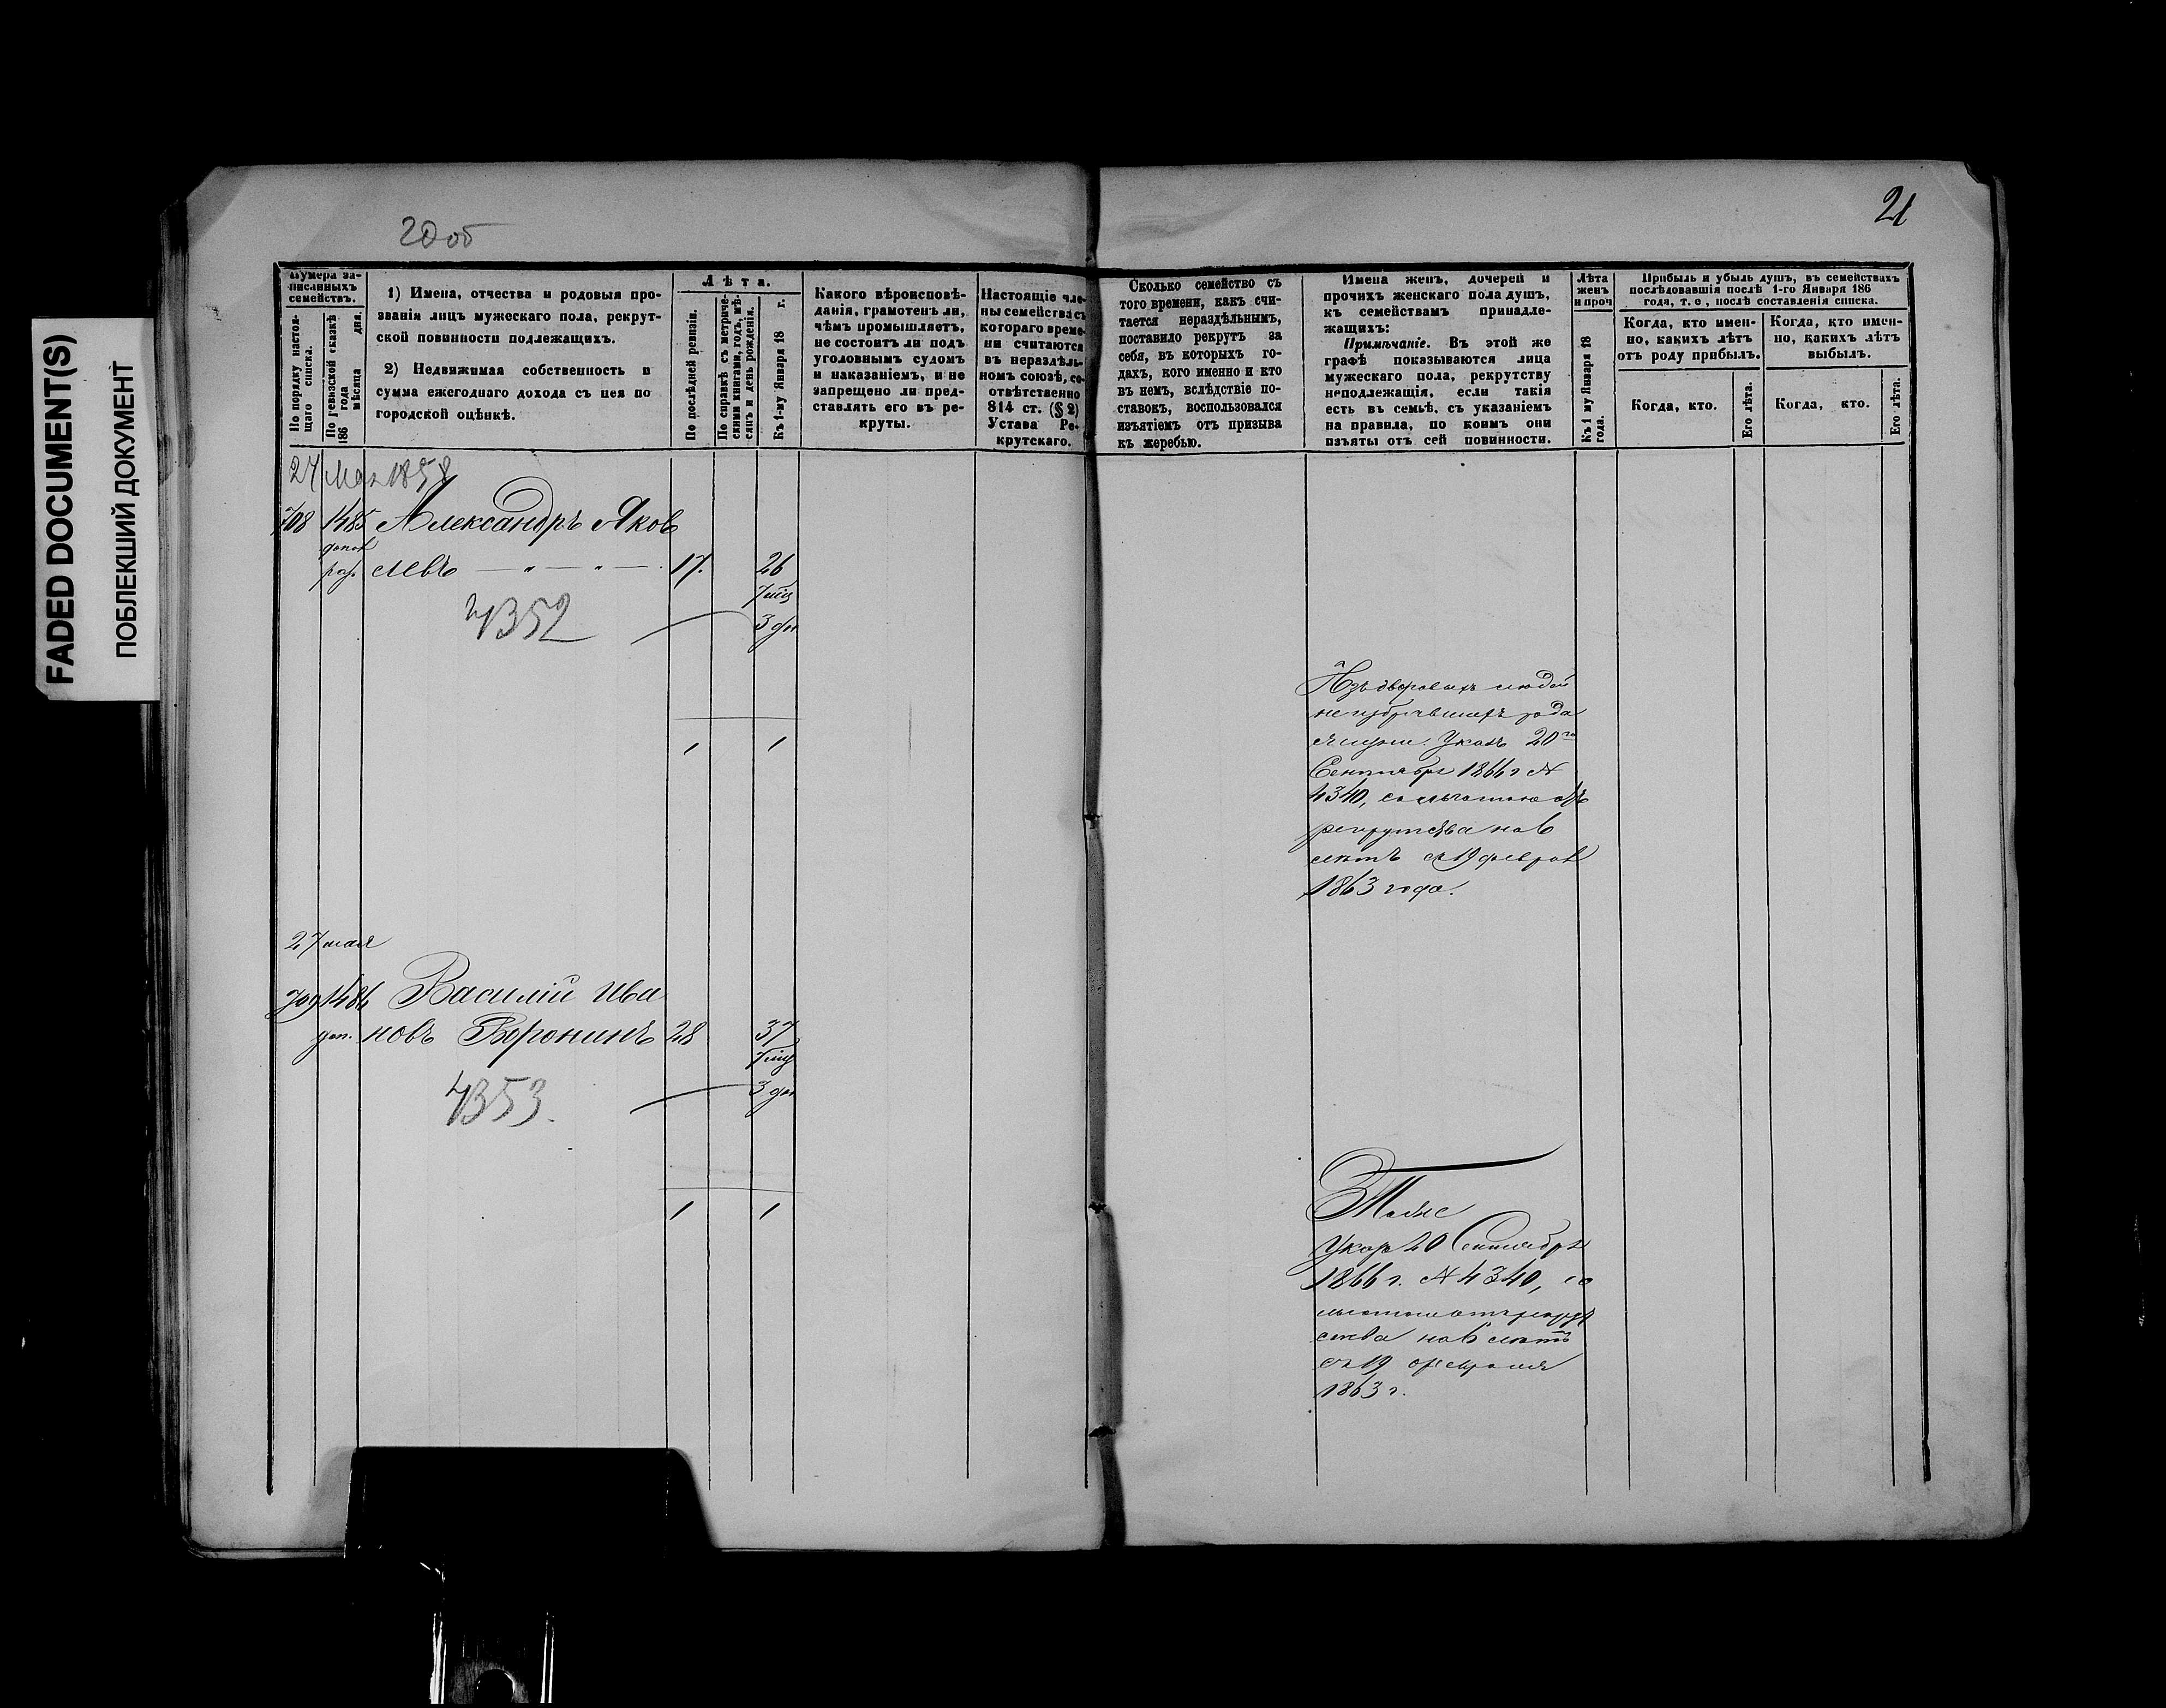 FADED DOCUMENT(S)
ПОБЛЕКШИЙ ДОКУМЕНТ
20 об
21
Нумера за-
писанныхъ
семействъ.
По порядку настоя-
щаго списка.
По ревизской сказкѣ
186 года
мѣсяца дня.
1) Имена, отчества и родовыя про-
званія лицъ мужескаго пола, рекрут-
ской повинности подлежащихъ.
2) Недвижимая собственность и
сумма ежегоднаго дохода съ нея по
городской оцѣнкѣ.
Лѣта.
По послѣдней ревизіи.
По справкѣ съ метриче-
скими книгами, годъ, мѣ-
сяцъ и день рожденія.
Къ 1-му Января 18 г.
Какого вѣроисповѣ-
данія, грамотенъ ли,
чѣмъ промышляетъ,
не состоитъ ли подъ
уголовнымъ судомъ
и наказаніемъ, и не
запрещено ли пред-
ставлять его въ ре-
круты.
Настоящіе чле-
ны семейства съ
котораго време-
ни считаются
въ нераздѣль-
номъ союзѣ, со-
отвѣтственно
814 ст. (§ 2)
Устава Ре-
крутскаго.
Сколько семейство съ
того времени, какъ счи-
тается нераздѣльнымъ,
поставило рекрутъ за
себя, въ которыхъ го-
дахъ, кого именно и кто
въ немъ, вслѣдствіе по-
ставокъ, воспользовался
изъятіемъ отъ призыва
къ жеребью.
Имена женъ, дочерей и
прочихъ женскаго пола душъ,
къ семействамъ принадле-
жащихъ:
Примѣчаніе. Въ этой же
графѣ показываются лица
мужескаго пола, рекрутству
неподлежащія, если такія
есть въ семьѣ, съ указаніемъ
на правила, по коимъ они
изъяты отъ сей повинности.
Лѣта
женъ
и проч
Къ 1 му Января 18
года.
Прибыль и убыль душъ, въ семействахъ
послѣдовавшія послѣ 1-го Января 186
года, т. е., послѣ составленія списка.
Когда, кто имен-
но, какихъ лѣтъ
отъ роду прибылъ.
Когда, кто имен-
но, какихъ лѣтъ
выбылъ.
Когда, кто.
Его лѣта.
Когда, кто.
Его лѣта.
27 Мая 1858
708 1485 Александръ Яков
левъ 17. 26
7 мѣс
3 дн
4352
1 1
Изъ дворовыхъ людей
не избравшихъ рода
жизни. Указъ 20го
Сентября 1866 г №
4340, со льготою отъ
рекрутства на 6
лѣтъ съ 19 феврал
1863 года.
27 мая
709 1486 Василій Ива
доп. новъ Воронинъ 28 37
7 мѣс
3 дн
4353.
1 1
Тоже
Указ 20 Сентября
1866 г. № 4340, со
льготою отъ рекрут
ства на 6 лѣтъ
съ 19 февраля
1863 г.